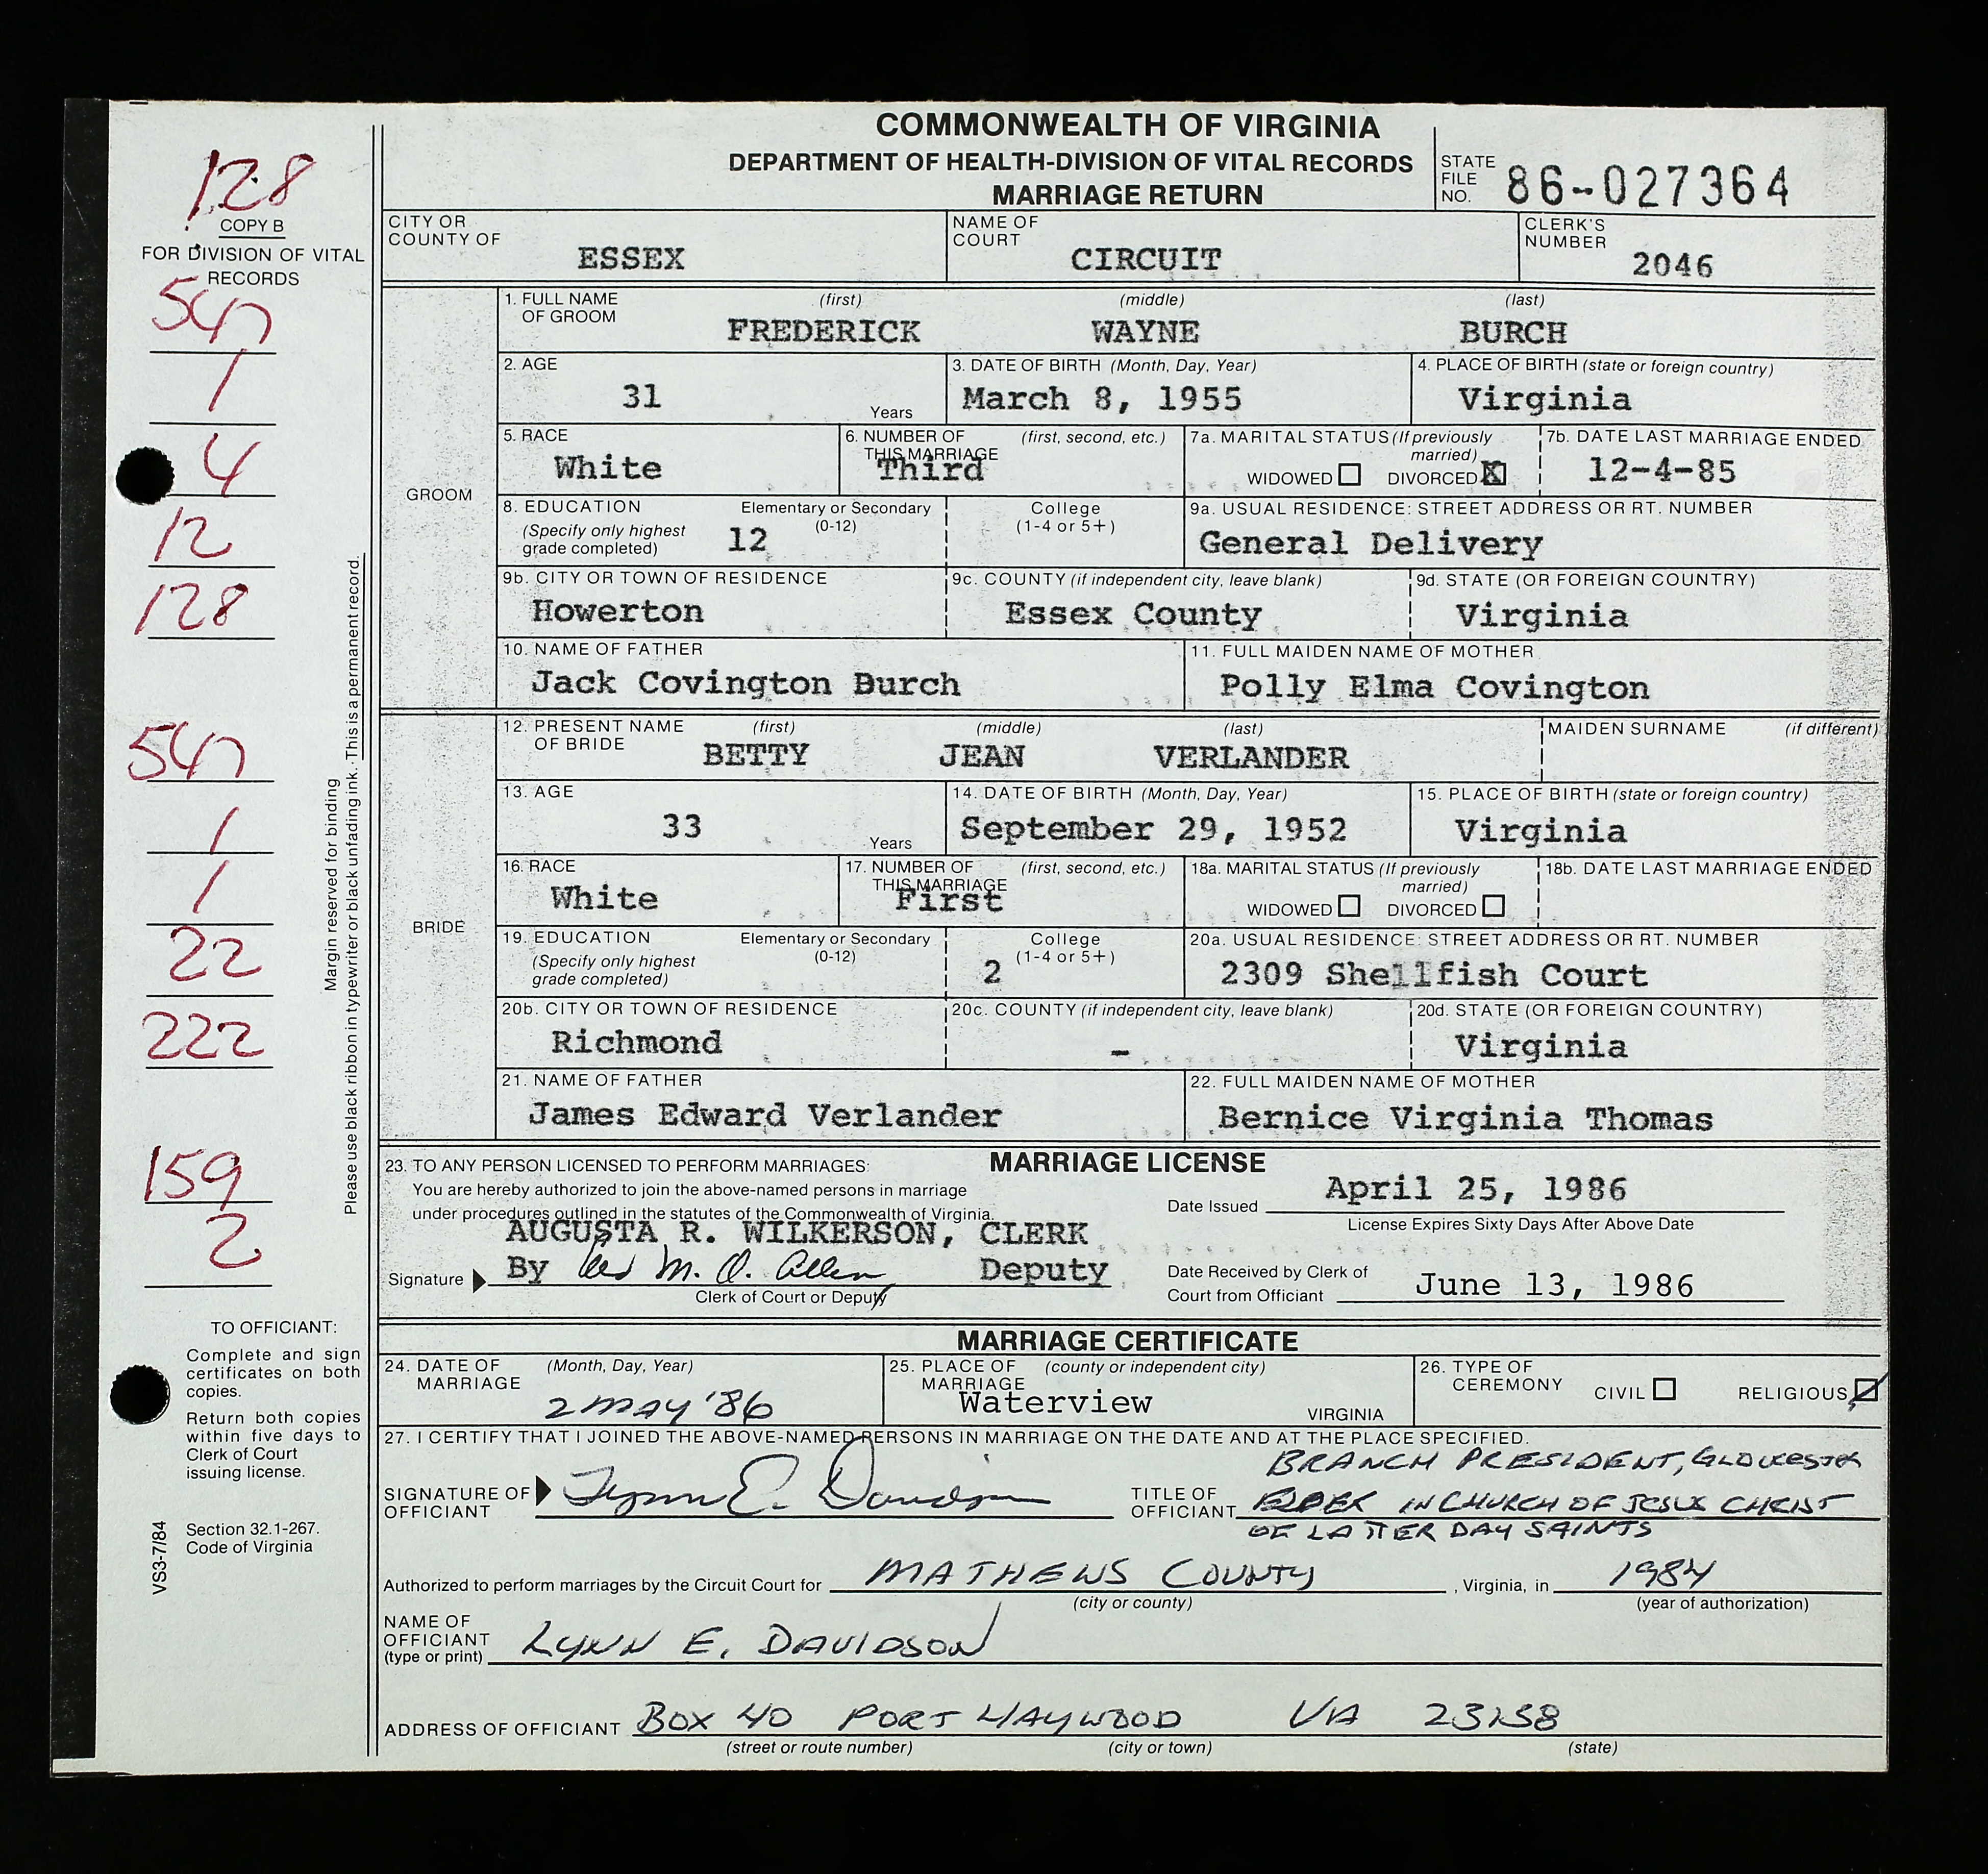 COMMONWEALTH OF VIRGINIA
DEPARTMENT OF HEALTH-DIVISION OF VITAL RECORDS
MARRIAGE RETURN
STATE FILE NO. 86-027364
128
COPY B
FOR DIVISION OF VITAL RECORDS
547
1
4
12
128
547
1
1
22
222
159
2
Margin reserved for binding
Please use black ribbon in typewriter or black unfading ink. This is a permanent record.
CITY OR COUNTY OF ESSEX
NAME OF COURT CIRCUIT
CLERK'S NUMBER 2046
GROOM
1. FULL NAME OF GROOM (first) (middle) (last)
FREDERICK WAYNE BURCH
2. AGE 31 Years
3. DATE OF BIRTH (Month, Day, Year) March 8, 1955
4. PLACE OF BIRTH (state or foreign country) Virginia
5. RACE White
6. NUMBER OF THIS MARRIAGE (first, second, etc.) Third
7a. MARITAL STATUS (If previously married) WIDOWED DIVORCED X
7b. DATE LAST MARRIAGE ENDED 12-4-85
8. EDUCATION (Specify only highest grade completed) Elementary or Secondary (0-12) 12 College (1-4 or 5+)
9a. USUAL RESIDENCE: STREET ADDRESS OR RT. NUMBER General Delivery
9b. CITY OR TOWN OF RESIDENCE Howerton
9c. COUNTY (if independent city, leave blank) Essex County
9d. STATE (OR FOREIGN COUNTRY) Virginia
10. NAME OF FATHER Jack Covington Burch
11. FULL MAIDEN NAME OF MOTHER Polly Elma Covington
BRIDE
12. PRESENT NAME OF BRIDE (first) (middle) (last) MAIDEN SURNAME (if different)
BETTY JEAN VERLANDER
13. AGE 33 Years
14. DATE OF BIRTH (Month, Day, Year) September 29, 1952
15. PLACE OF BIRTH (state or foreign country) Virginia
16. RACE White
17. NUMBER OF THIS MARRIAGE (first, second, etc.) First
18a. MARITAL STATUS (If previously married) WIDOWED DIVORCED
18b. DATE LAST MARRIAGE ENDED
19. EDUCATION (Specify only highest grade completed) Elementary or Secondary (0-12) College (1-4 or 5+) 2
20a. USUAL RESIDENCE: STREET ADDRESS OR RT. NUMBER 2309 Shellfish Court
20b. CITY OR TOWN OF RESIDENCE Richmond
20c. COUNTY (if independent city, leave blank) -
20d. STATE (OR FOREIGN COUNTRY) Virginia
21. NAME OF FATHER James Edward Verlander
22. FULL MAIDEN NAME OF MOTHER Bernice Virginia Thomas
MARRIAGE LICENSE
23. TO ANY PERSON LICENSED TO PERFORM MARRIAGES:
You are hereby authorized to join the above-named persons in marriage
under procedures outlined in the statutes of the Commonwealth of Virginia.
AUGUSTA R. WILKERSON, CLERK
Signature By M. O. Allen Deputy
Clerk of Court or Deputy
Date Issued April 25, 1986
License Expires Sixty Days After Above Date
Date Received by Clerk of Court from Officiant June 13, 1986
TO OFFICIANT:
Complete and sign
certificates on both
copies.
Return both copies
within five days to
Clerk of Court
issuing license.
Section 32.1-267.
Code of Virginia
VS3-7/84
MARRIAGE CERTIFICATE
24. DATE OF MARRIAGE (Month, Day, Year) 2 MAY '86
25. PLACE OF MARRIAGE (county or independent city) Waterview VIRGINIA
26. TYPE OF CEREMONY CIVIL RELIGIOUS
27. I CERTIFY THAT I JOINED THE ABOVE-NAMED PERSONS IN MARRIAGE ON THE DATE AND AT THE PLACE SPECIFIED.
SIGNATURE OF OFFICIANT Lynn E. Davidson
TITLE OF OFFICIANT BRANCH PRESIDENT, GLOUCESTER
ELDER IN CHURCH OF JESUS CHRIST
OF LATTER DAY SAINTS
Authorized to perform marriages by the Circuit Court for MATHEWS COUNTY, Virginia, in 1984
(city or county) (year of authorization)
NAME OF OFFICIANT (type or print) LYNN E. DAVIDSON
ADDRESS OF OFFICIANT BOX 40 PORT HAYWOOD VA 23138
(street or route number) (city or town) (state)